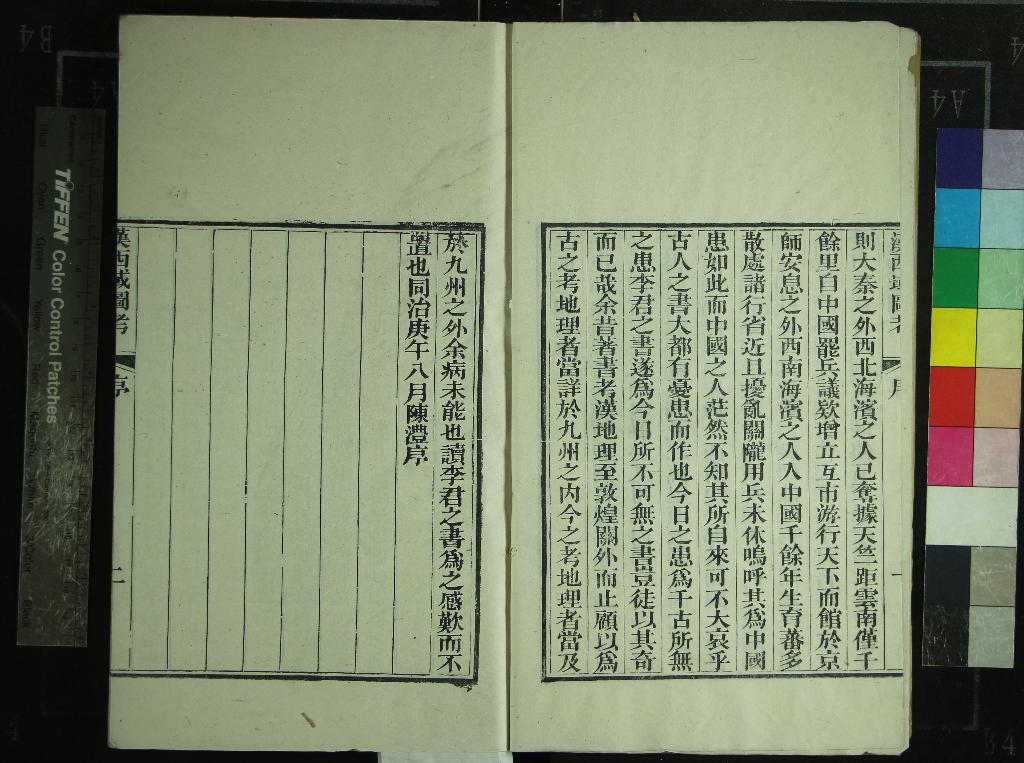 漢西域圖考
序
一
則大秦之外西北海濱之人已奪據天竺距雲南僅千
餘里自中國罷兵議款增立互市游行天下而館於京
師安息之外西南海濱之人入中國千餘年生育蕃多
散處諸行省近且擾亂關隴用兵未休嗚呼其為中國
患如此而中國之人茫然不知其所自來可不大哀乎
古人之書大都有憂患而作也今日之患為千古所無
之患李君之書遂為今日所不可無之書豈徒以其奇
而已哉余昔著書考漢地理至敦煌關外而止顧以為
古之考地理者當詳於九州之內今之考地理者當及
於九州之外余病未能也讀李君之書為之感歎而不
置也同治庚午八月陳澧序
漢西域圖考
序
二
TIFFEN Color Control Patches
Blue
Cyan
Green
Yellow
Red
Magenta
White
3/Color
Black
B4
A4
A4
B4